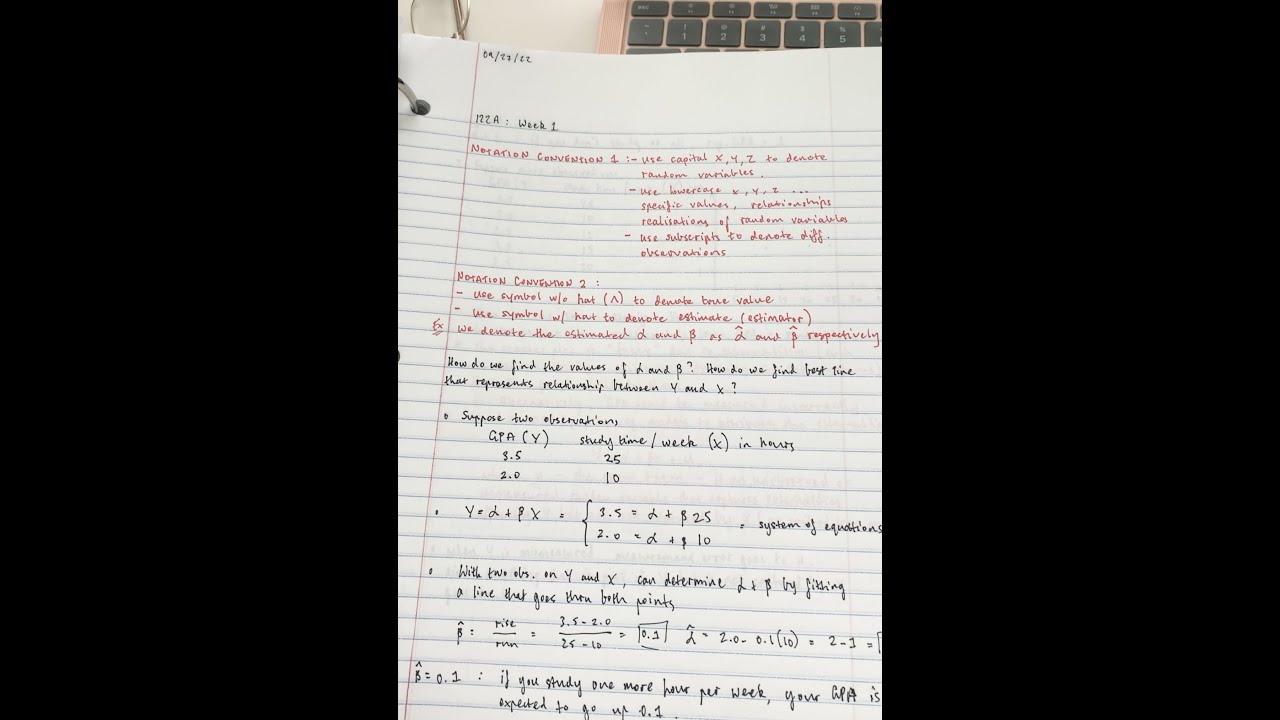 esc
! @ # $ %
1 2 3 4 5
09/27/22
122A : Week 1
NOTATION CONVENTION 1 : - use capital X, Y, Z to denote
random variables.
- use lowercase x, y, z ...
specific values, relationships
realisations of random variables
- use subscripts to denote diff.
observations
NOTATION CONVENTION 2 :
- use symbol w/o hat (^) to denote true value
- use symbol w/ hat to denote estimate (estimator)
Ex we denote the estimated α and β as α̂ and β̂ respectively
How do we find the values of α and β? How do we find best line
that represents relationship between Y and X?
• Suppose two observations,
GPA (Y) study time / week (X) in hours
3.5 25
2.0 10
• Y = α + β X = { 3.5 = α + β 25
2.0 = α + β 10 = system of equations
• With two obs. on Y and X, can determine α + β by fitting
a line that goes thru both points
β̂ : rise/run = 3.5 - 2.0 / 25 - 10 = 0.1 α̂ = 2.0 - 0.1(10) = 2 - 1 =
β̂ = 0.1 : if you study one more hour per week, your GPA is
expected to go up 0.1.